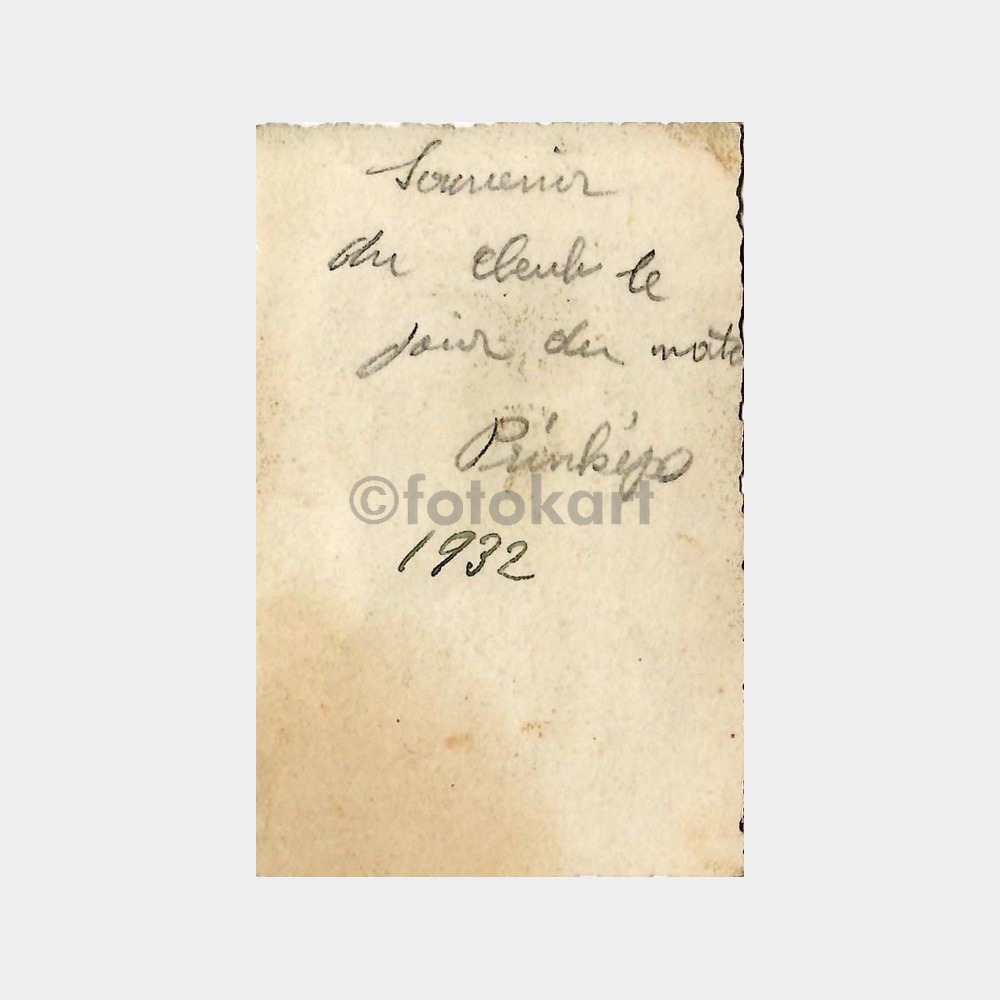 Souvenir
du club le
jour du mate
Prinkipo
©fotokart
1932